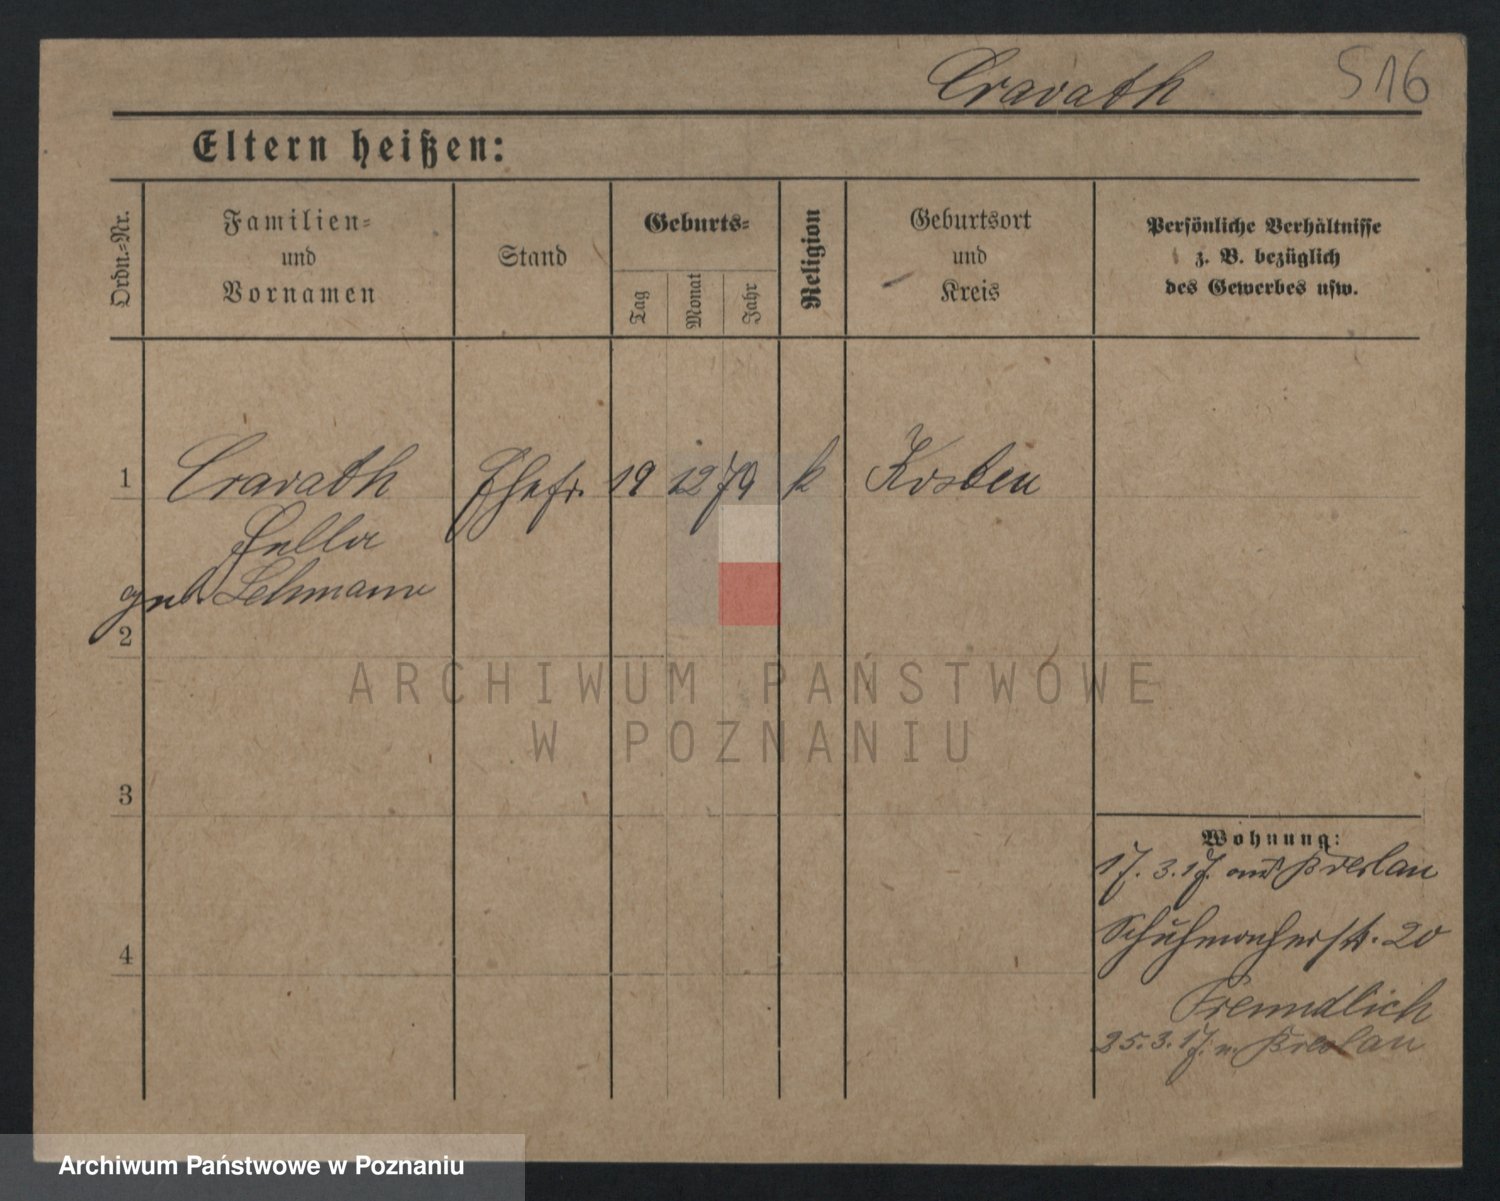 Cravath 516
Eltern heißen:
Ordn.-Nr.
Familien-
und
Vornamen
Stand
Geburts-
Tag
Monat
Jahr
Religion
Geburtsort
und
Kreis
Persönliche Verhältnisse
z. B. bezüglich
des Gewerbes usw.
1 Cravath Ehefr. 19 12 79 k Kosten
geb. Lehmann
2
3
4
Wohnung:
17.3.17. aus Breslau
Schuhmacherstr. 20
Freundlich
25.3.17. n. Breslau
ARCHIWUM PAŃSTWOWE
W POZNANIU
Archiwum Państwowe w Poznaniu